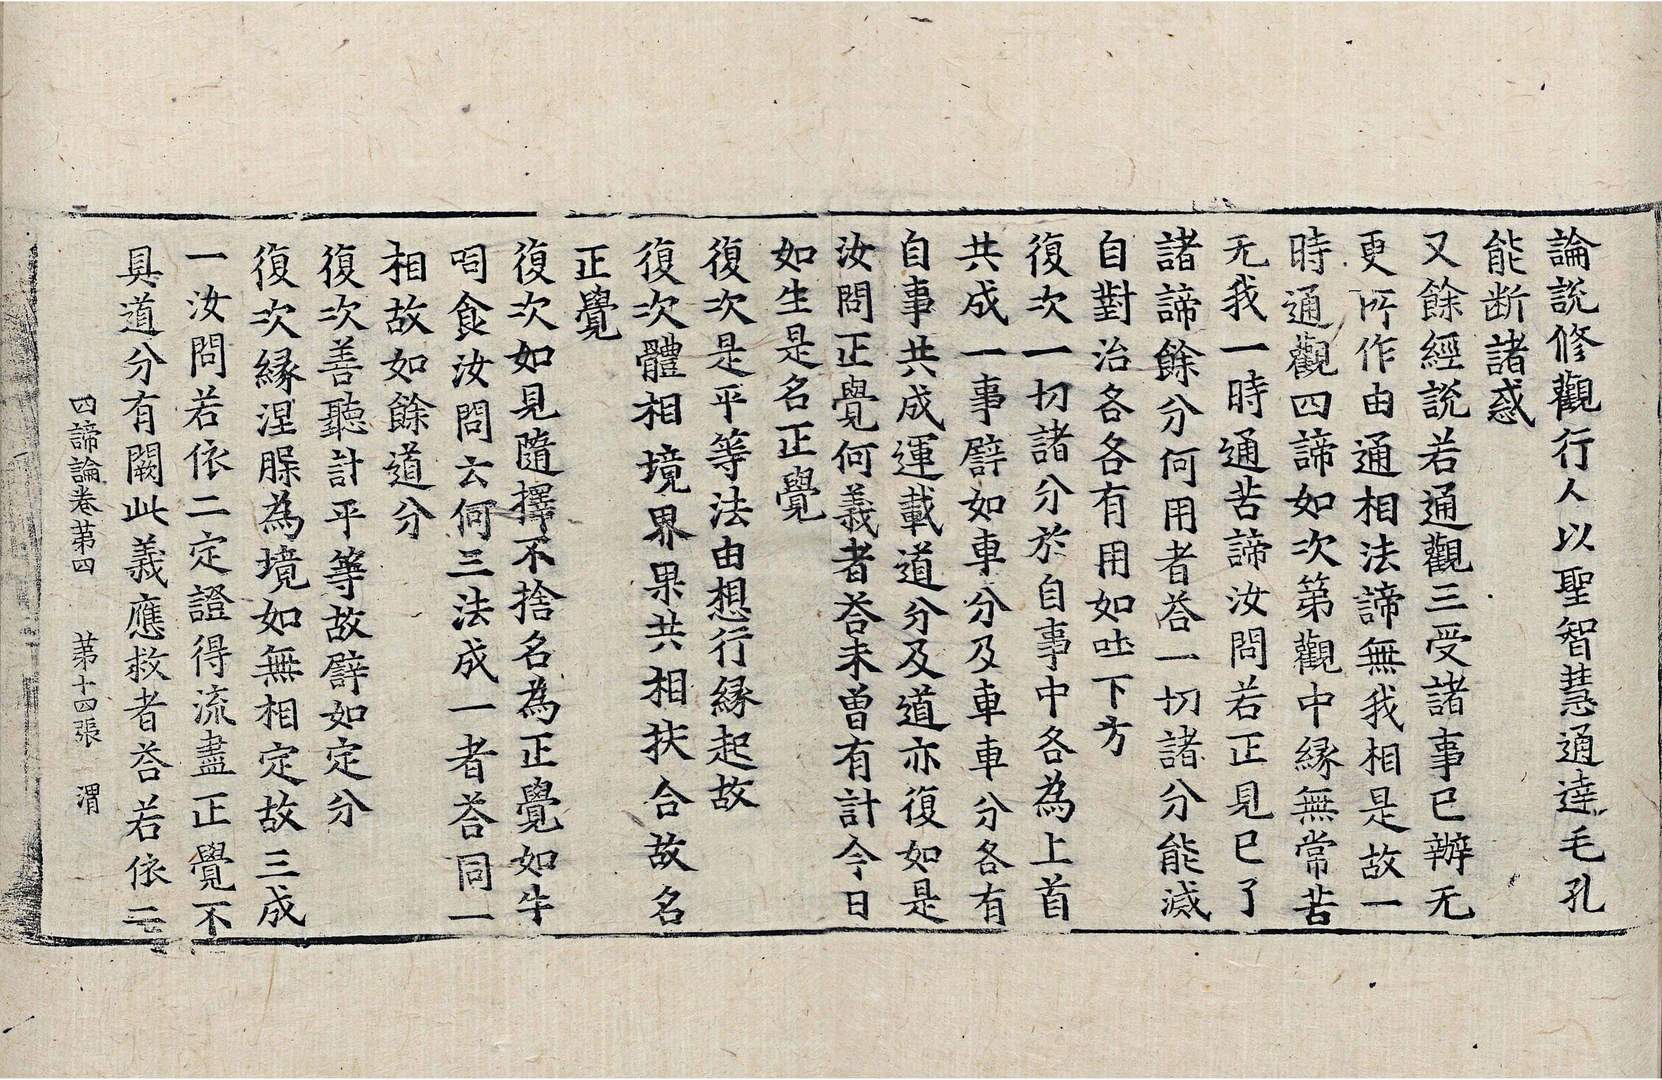 論說修觀行人以聖智慧通達毛孔
能断諸惑
又餘經說若通觀三受諸事已辦无
更所作由通相法諦無我相是故一
時通觀四諦如次第觀中縁無常苦
无我一時通苦諦汝問若正見已了
諸諦餘分何用者荅一切諸分能滅
自對治各各有用如吐下方
復次一切諸分於自事中各為上首
共成一事譬如車分及車車分各有
自事共成運載道分及道亦復如是
汝問正覺何義者荅未曽有計今日
如生是名正覺
復次是平等法由想行縁起故
復次體相境界果共相扶合故名
正覺
復次如見隨擇不捨名為正覺如牛
呞食汝問云何三法成一者荅同一
相故如餘道分
復次善聽計平等故譬如定分
復次縁涅槃為境如無相定故三成
一汝問若依二定證得流盡正覺不
具道分有闕此義應救者荅若依二
四諦論卷苐四　苐十四張　渭